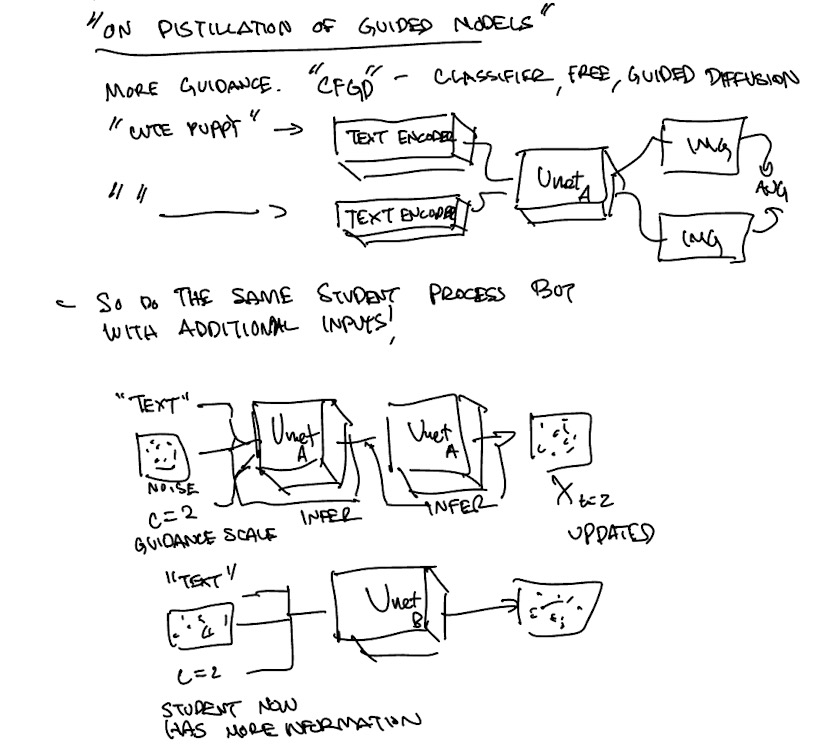 "ON DISTILLATION OF GUIDED MODELS"
MORE GUIDANCE. "CFGD" - CLASSIFIER, FREE, GUIDED DIFFUSION
"CUTE PUPPY" →
TEXT ENCODER
Unet A
IMG
AVG
" "
TEXT ENCODER
IMG
- SO DO THE SAME STUDENT PROCESS BUT
WITH ADDITIONAL INPUTS!
"TEXT"
Unet A
Unet A
NOISE
C=2
GUIDANCE SCALE
INFER
INFER
X t=2
UPDATED
"TEXT"
Unet B
C=2
STUDENT NOW
HAS MORE INFORMATION